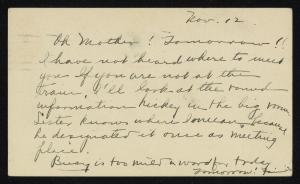 Nov. 12.
Oh Mother! Tomorrow!!
I have not heard where to meet
you. If you are not at the
train, I'll look at the round
information hickey in the big room.
Sister knows where I mean because
he designated it once as meeting
place.
Busy is too mild a word for today.
Tomorrow!